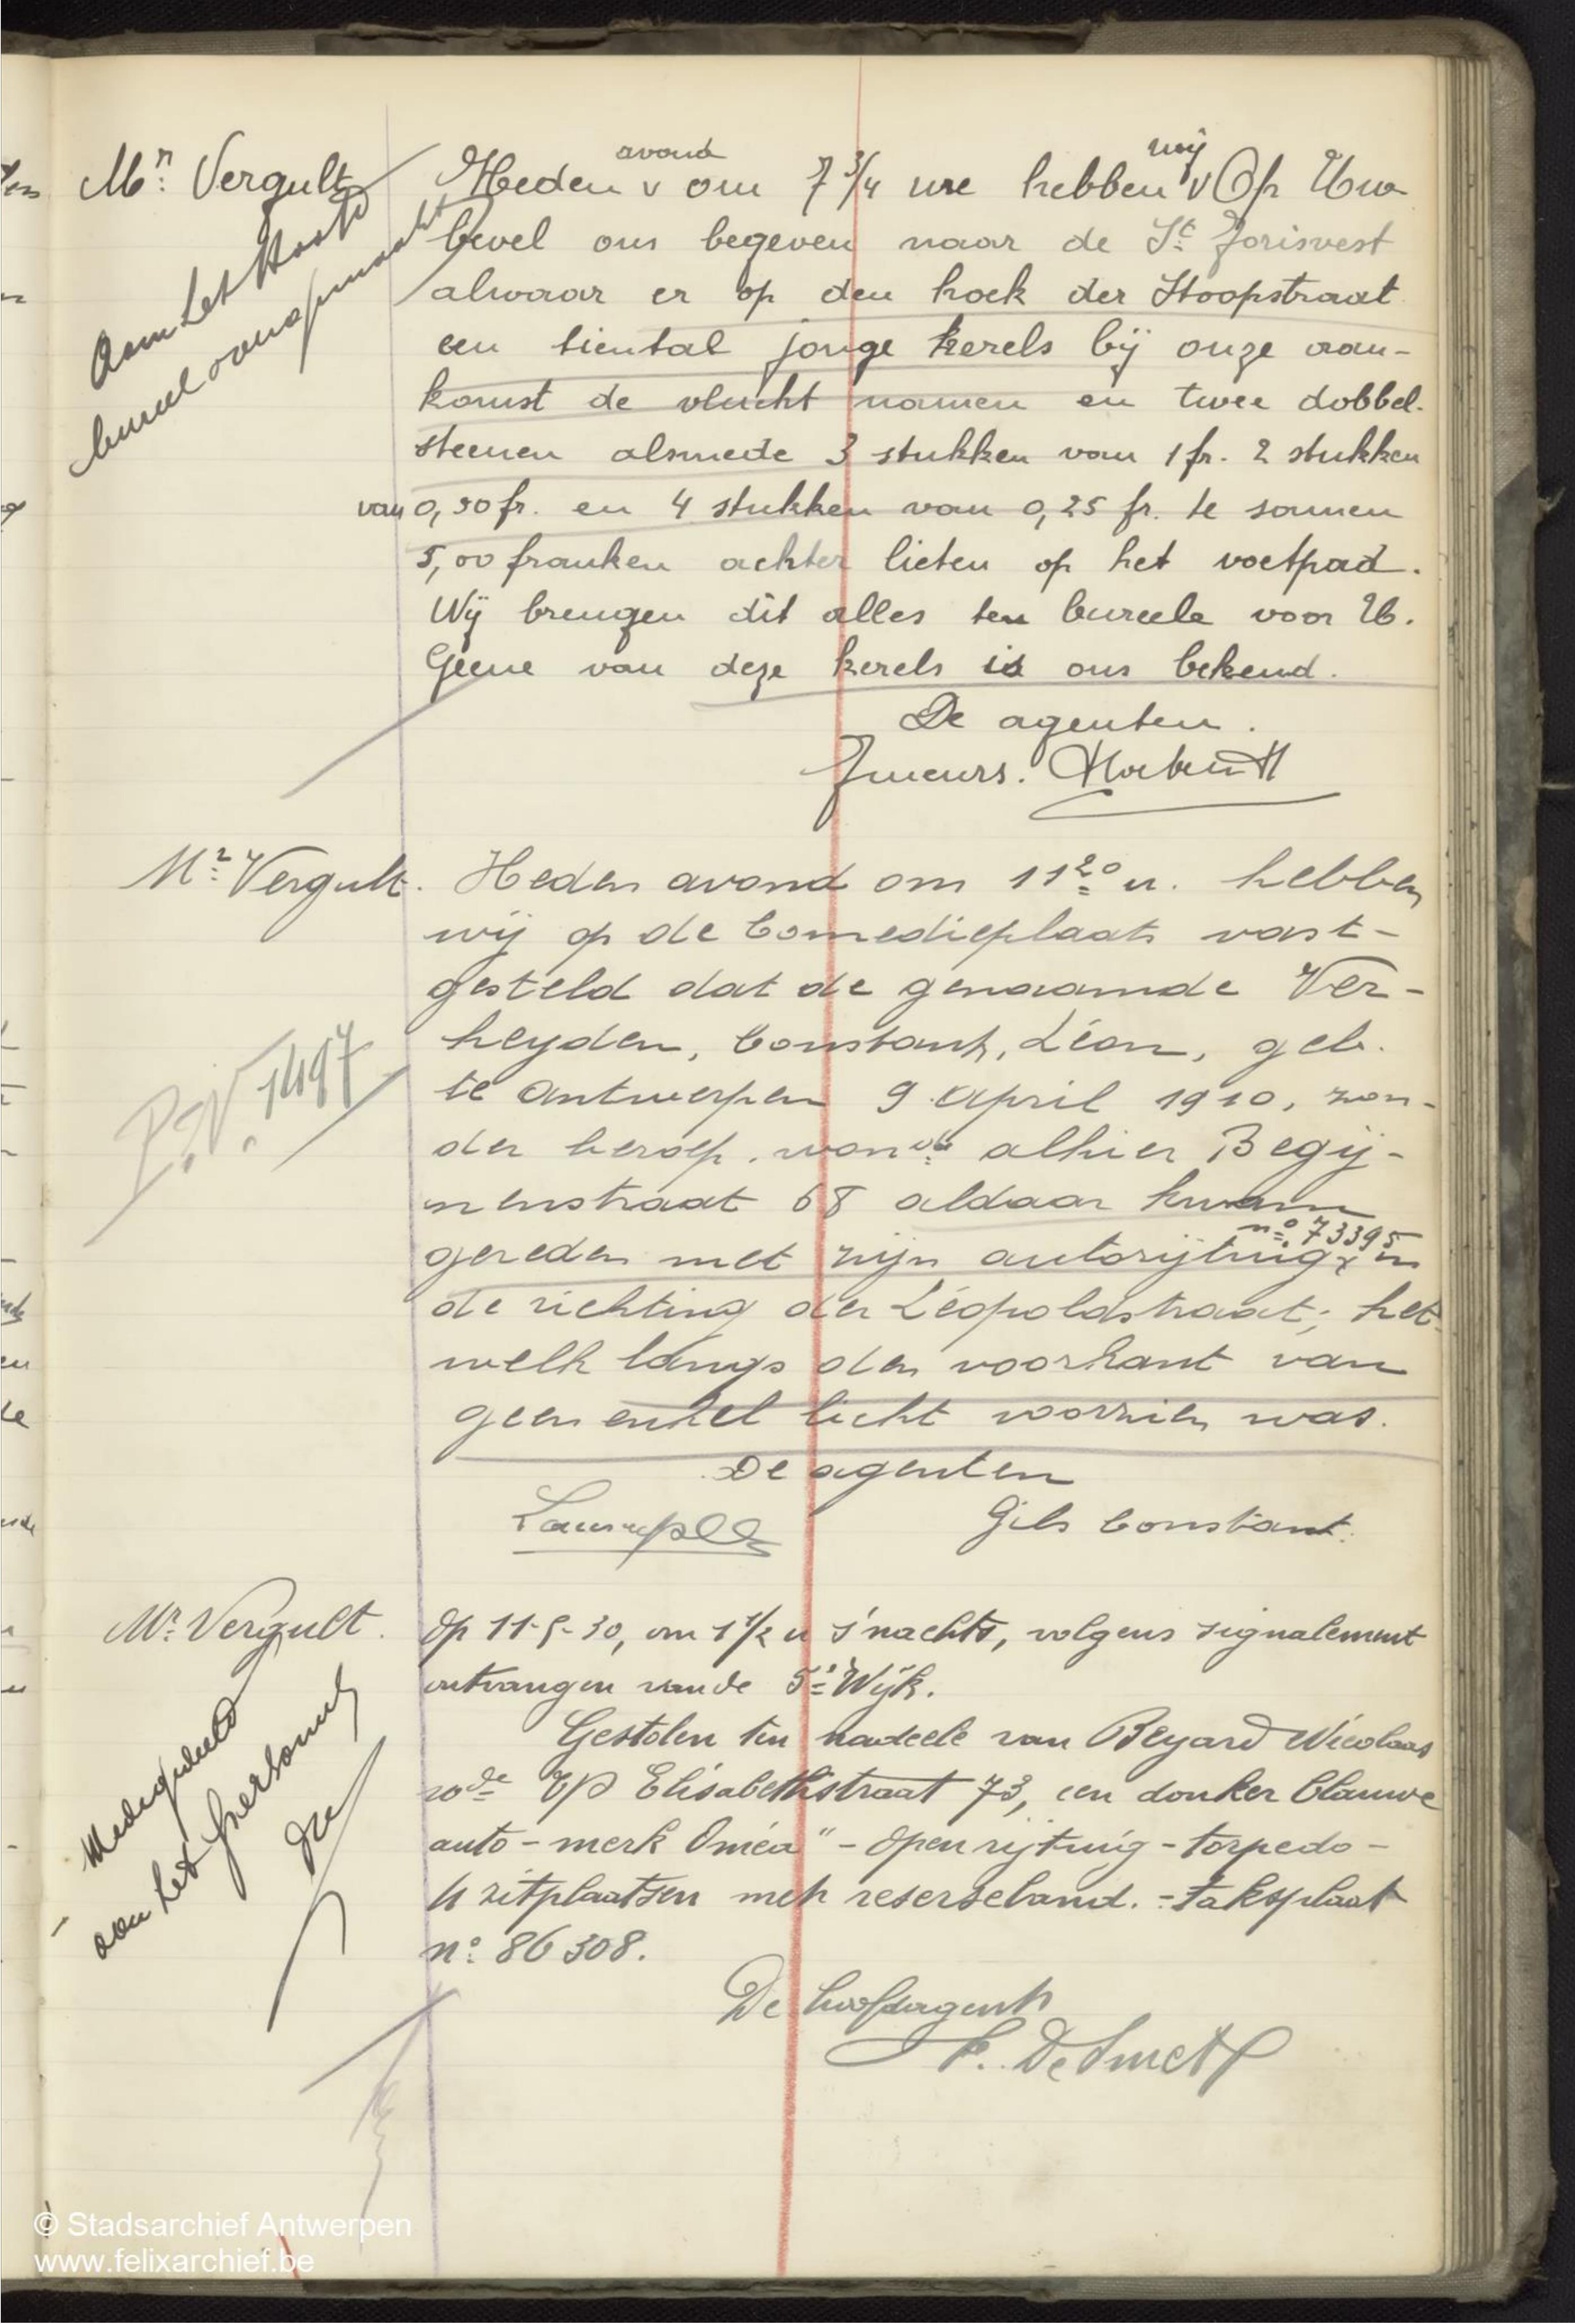 Mr: Vergult
Heden avond om 7 3/4 ure hebben wij Op Uw
bevel ons begeven naar de St Jorisvest
alwaar er op den hoek der Hoopstraat
een tiental jonge kerels bij onze aan-
komst de vlucht namen en twee dobbel-
steenen alsmede 3 stukken van 1 fr. 2 stukken
van 0,50 fr. en 4 stukken van 0,25 fr. te samen
5,00 franken achter lieten op het voetpad.
Wij brengen dit alles ten bureele voor U.
Geene van deze kerels is ons bekend.
De agenten.
Aan het Hoofd
bureel overgemaakt
Mr: Vergult.
Heden avond om 11 20 u. hebben
wij op de Comedieplaats vast-
gesteld dat de genaamde Ver-
heyden, Constant, Léon, geb.
te Antwerpen 9 April 1910, zon-
der beroep, wonde alhier Begij-
nenstraat 68 aldaar kwam
gereden met zijn autorijtuig no: 73395 in
de richting der Léopoldstraat; het-
welk langs den voorkant van
geen enkel licht voorzien was.
De agenten
Gils Constant.
P.V. 1497
Mr: Vergult.
Op 11-5-30, om 1 1/2 u s'nachts, volgens signalement
ontvangen van de 5e Wijk.
Gestolen ten nadeele van Beyard Nicolaas
wde Elisabethstraat 73, een donker blauwe
auto - merk Oméa" - open rijtuig - torpedo -
4 zitplaatsen met reserveband. - taksplaat
no: 86308.
De hoofdagent
F. De Smet
Medegedeeld
aan het personeel
© Stadsarchief Antwerpen
www.felixarchief.be